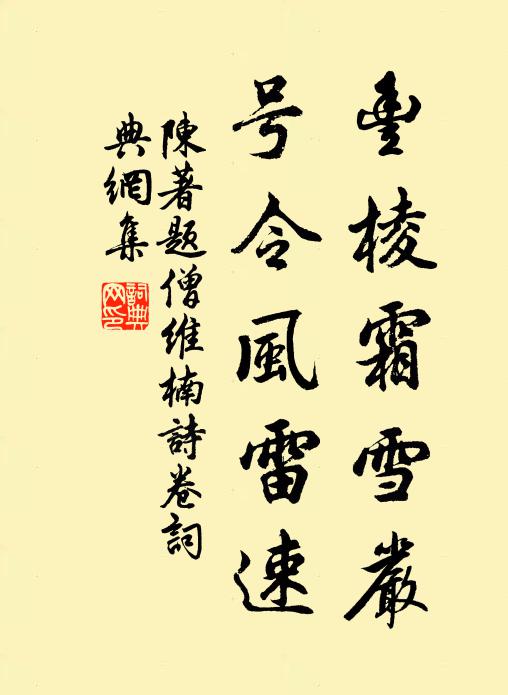 豊棱霜雪嚴
号令風雷速
陳著題僧維楠詩卷詞
典網集
詞典網印